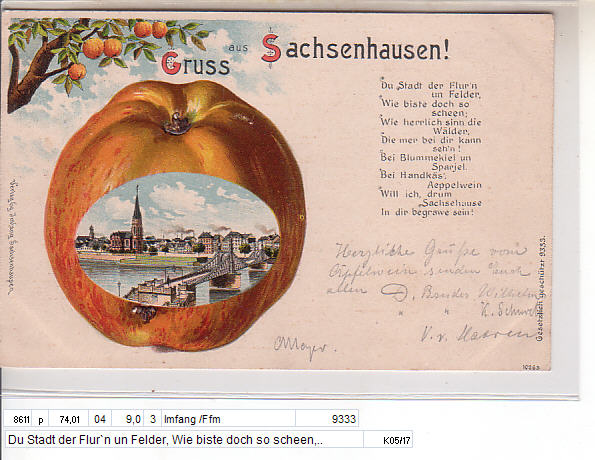 Gruss aus Sachsenhausen!
Du Stadt der Flur'n
un Felder,
Wie biste doch so
scheen;
Wie herrlich sinn die
Wälder,
Die mer bei dir kann
seh'n!
Bei Blummekiel un
Sparjel.
Bei Handkäs,
Aeppelwein
Will ich, drum
Sachsehause
In dir begrawe sein!
Herzliche Grüße vom
Apfelwein senden Euch
allen D. Bender Wilhelm
" " K.
V. v.
Mayer.
Gesetzlich geschützt 9333.
10263
8611 p 74,01 04 9,0 3 Imfang /Ffm 9333
Du Stadt der Flur`n un Felder, Wie biste doch so scheen,.. K05/17